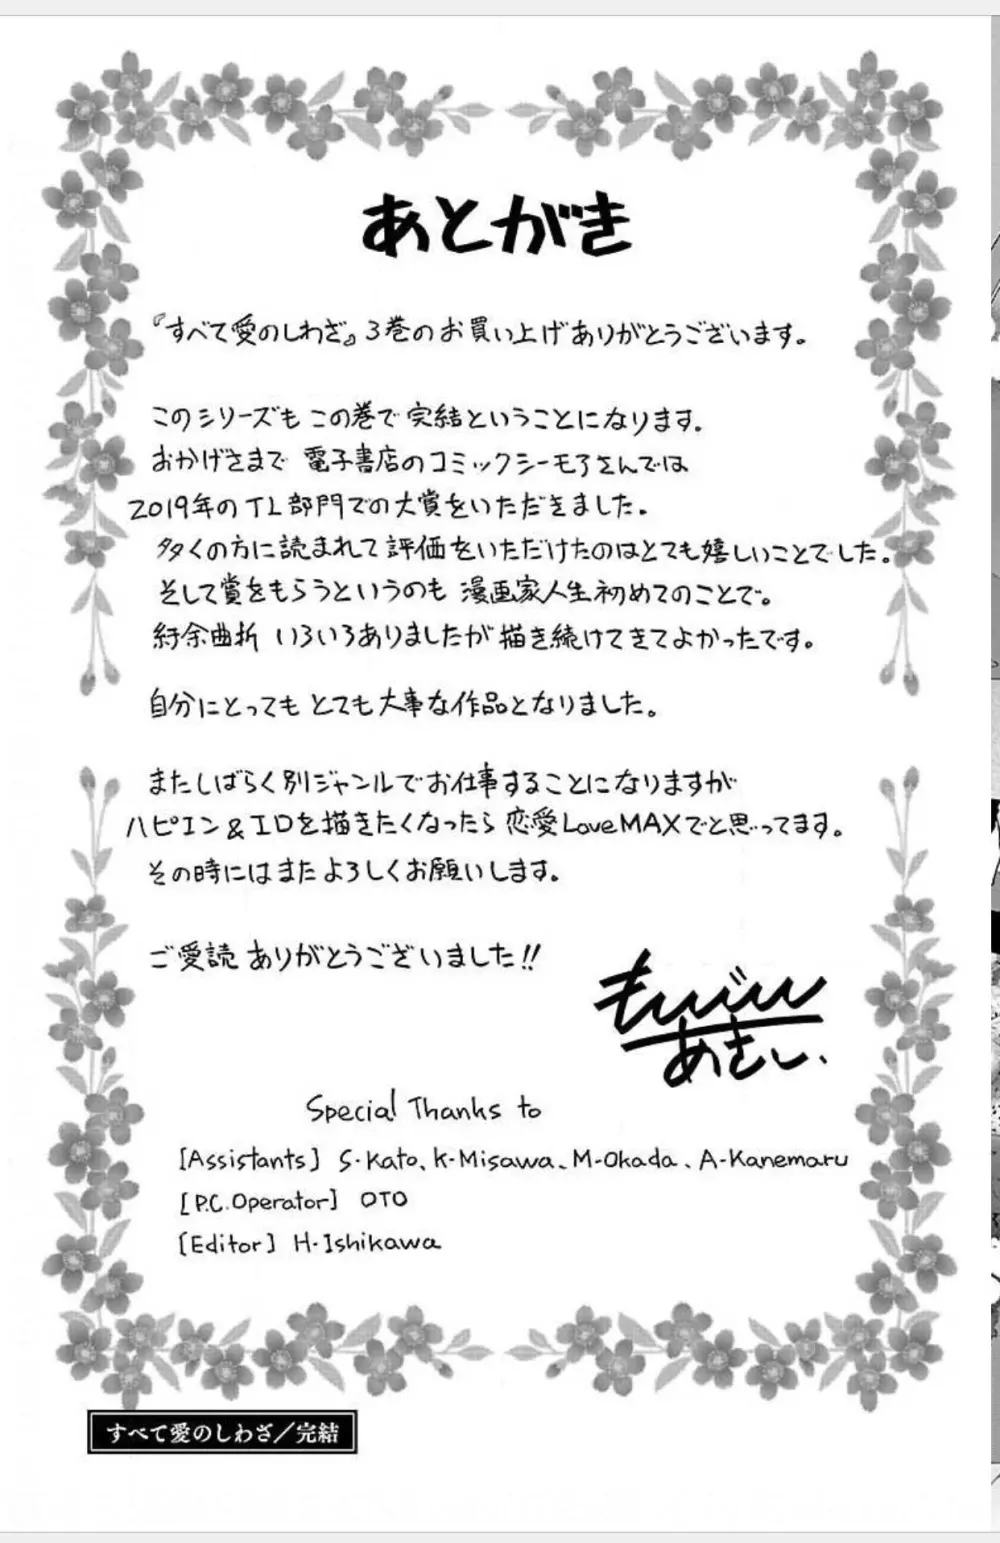 あとがき
『すべて愛のしわざ』3巻のお買い上げありがとうございます。
このシリーズもこの巻で完結ということになります。
おかげさまで 電子書店のコミックシーモアさんでは
2019年のTL部門での大賞をいただきました。
多くの方に読まれて評価をいただけたのはとても嬉しいことでした。
そして賞をもらうというのも 漫画家人生初めてのことで。
紆余曲折 いろいろありましたが描き続けてきてよかったです。
自分にとっても とても大事な作品となりました。
またしばらく別ジャンルでお仕事することになりますが
ハピエン&エロを描きたくなったら 恋愛LoveMAXでと思ってます。
その時にはまたよろしくお願いします。
ご愛読 ありがとうございました!!
あさい
Special Thanks to
[Assistants] S・Kato、K-Misawa、M-Okada、A-Kanemaru
[P.C.Operator] OTO
[Editor] H・Ishikawa
すべて愛のしわざ／完結